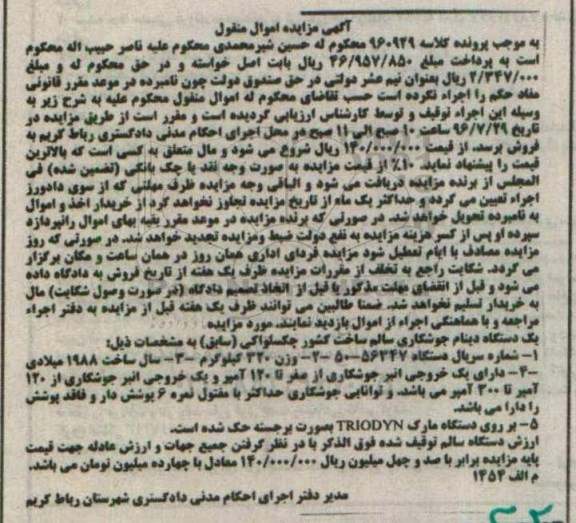 آگهی مزایده اموال منقول
به موجب پرونده کلاسه ۹۶۰۹۴۹ محکوم له حسین شیرمحمدی محکوم علیه ناصر حبیب اله محکوم
است به پرداخت مبلغ ۴۶/۹۵۷/۸۵۰ ریال بابت اصل خواسته و در حق محکوم له و مبلغ
۲/۳۴۷/۰۰۰ ریال بعنوان نیم عشر دولتی در حق صندوق دولت چون نامبرده در موعد مقرر قانونی
مفاد حکم را اجراء نکرده است حسب تقاضای محکوم له اموال منقول محکوم علیه به شرح زیر به
وسیله این اجراء توقیف و توسط کارشناس ارزیابی گردیده است و مقرر است از طریق مزایده در
تاریخ ۹۶/۷/۲۹ ساعت ۱۰ صبح الی ۱۱ صبح در محل اجرای احکام مدنی دادگستری رباط کریم به
فروش برسد. از قیمت ۱۴۰/۰۰۰/۰۰۰ ریال شروع می شود و مال متعلق به کسی است که بالاترین
قیمت را پیشنهاد نماید. ۱۰٪ از قیمت مزایده به صورت وجه نقد یا چک بانکی (تضمین شده) فی
المجلس از برنده مزایده دریافت می شود و الباقی وجه مزایده ظرف مهلتی که از سوی دادورز
اجراء تعیین می گردد و حداکثر یک ماه از تاریخ مزایده تجاوز نخواهد کرد از خریدار اخذ و اموال
به نامبرده تحویل خواهد شد. در صورتی که برنده مزایده در موعد مقرر بقیه بهای اموال رانپردازد
سپرده او پس از کسر هزینه مزایده به نفع دولت ضبط ومزایده تجدید خواهد شد. در صورتی که روز
مزایده مصادف با ایام تعطیل شود مزایده فردای اداری همان روز در همان ساعت و مکان برگزار
می گردد. شکایت راجع به تخلف از مقررات مزایده ظرف یک هفته از تاریخ فروش به دادگاه داده
می شود و قبل از انقضای مهلت مذکور یا قبل از اتخاذ تصمیم دادگاه (در صورت وصول شکایت) مال
به خریدار تسلیم نخواهد شد. ضمنا طالبین می توانند ظرف یک هفته قبل از مزایده به دفتر اجراء
مراجعه و با هماهنگی اجراء از اموال بازدید نمایند. مورد مزایده
یک دستگاه دینام جوشکاری سالم ساخت کشور چکسلواکی (سابق) به مشخصات ذیل:
۱- شماره سریال دستگاه ۵۶۳۴۷-۵۰ -۲- وزن ۳۲۰ کیلوگرم -۳- سال ساخت ۱۹۸۸ میلادی
-۴- دارای یک خروجی انبر جوشکاری از صفر تا ۱۲۰ آمپر و یک خروجی انبر جوشکاری از ۱۲۰
آمپر تا ۳۰۰ آمپر می باشد. و توانایی جوشکاری حداکثر با مفتول نمره ۶ پوشش دار و فاقد پوشش
را دارا می باشد.
۵- بر روی دستگاه مارک TRIODYN بصورت برجسته حک شده است.
ارزش دستگاه سالم توقیف شده فوق الذکر با در نظر گرفتن جمیع جهات و ارزش عادله جهت قیمت
پایه مزایده برابر با صد و چهل میلیون ریال ۱۴۰/۰۰۰/۰۰۰ معادل با چهارده میلیون تومان می باشد.
م الف ۱۴۵۴
مدیر دفتر اجرای احکام مدنی دادگستری شهرستان رباط کریم